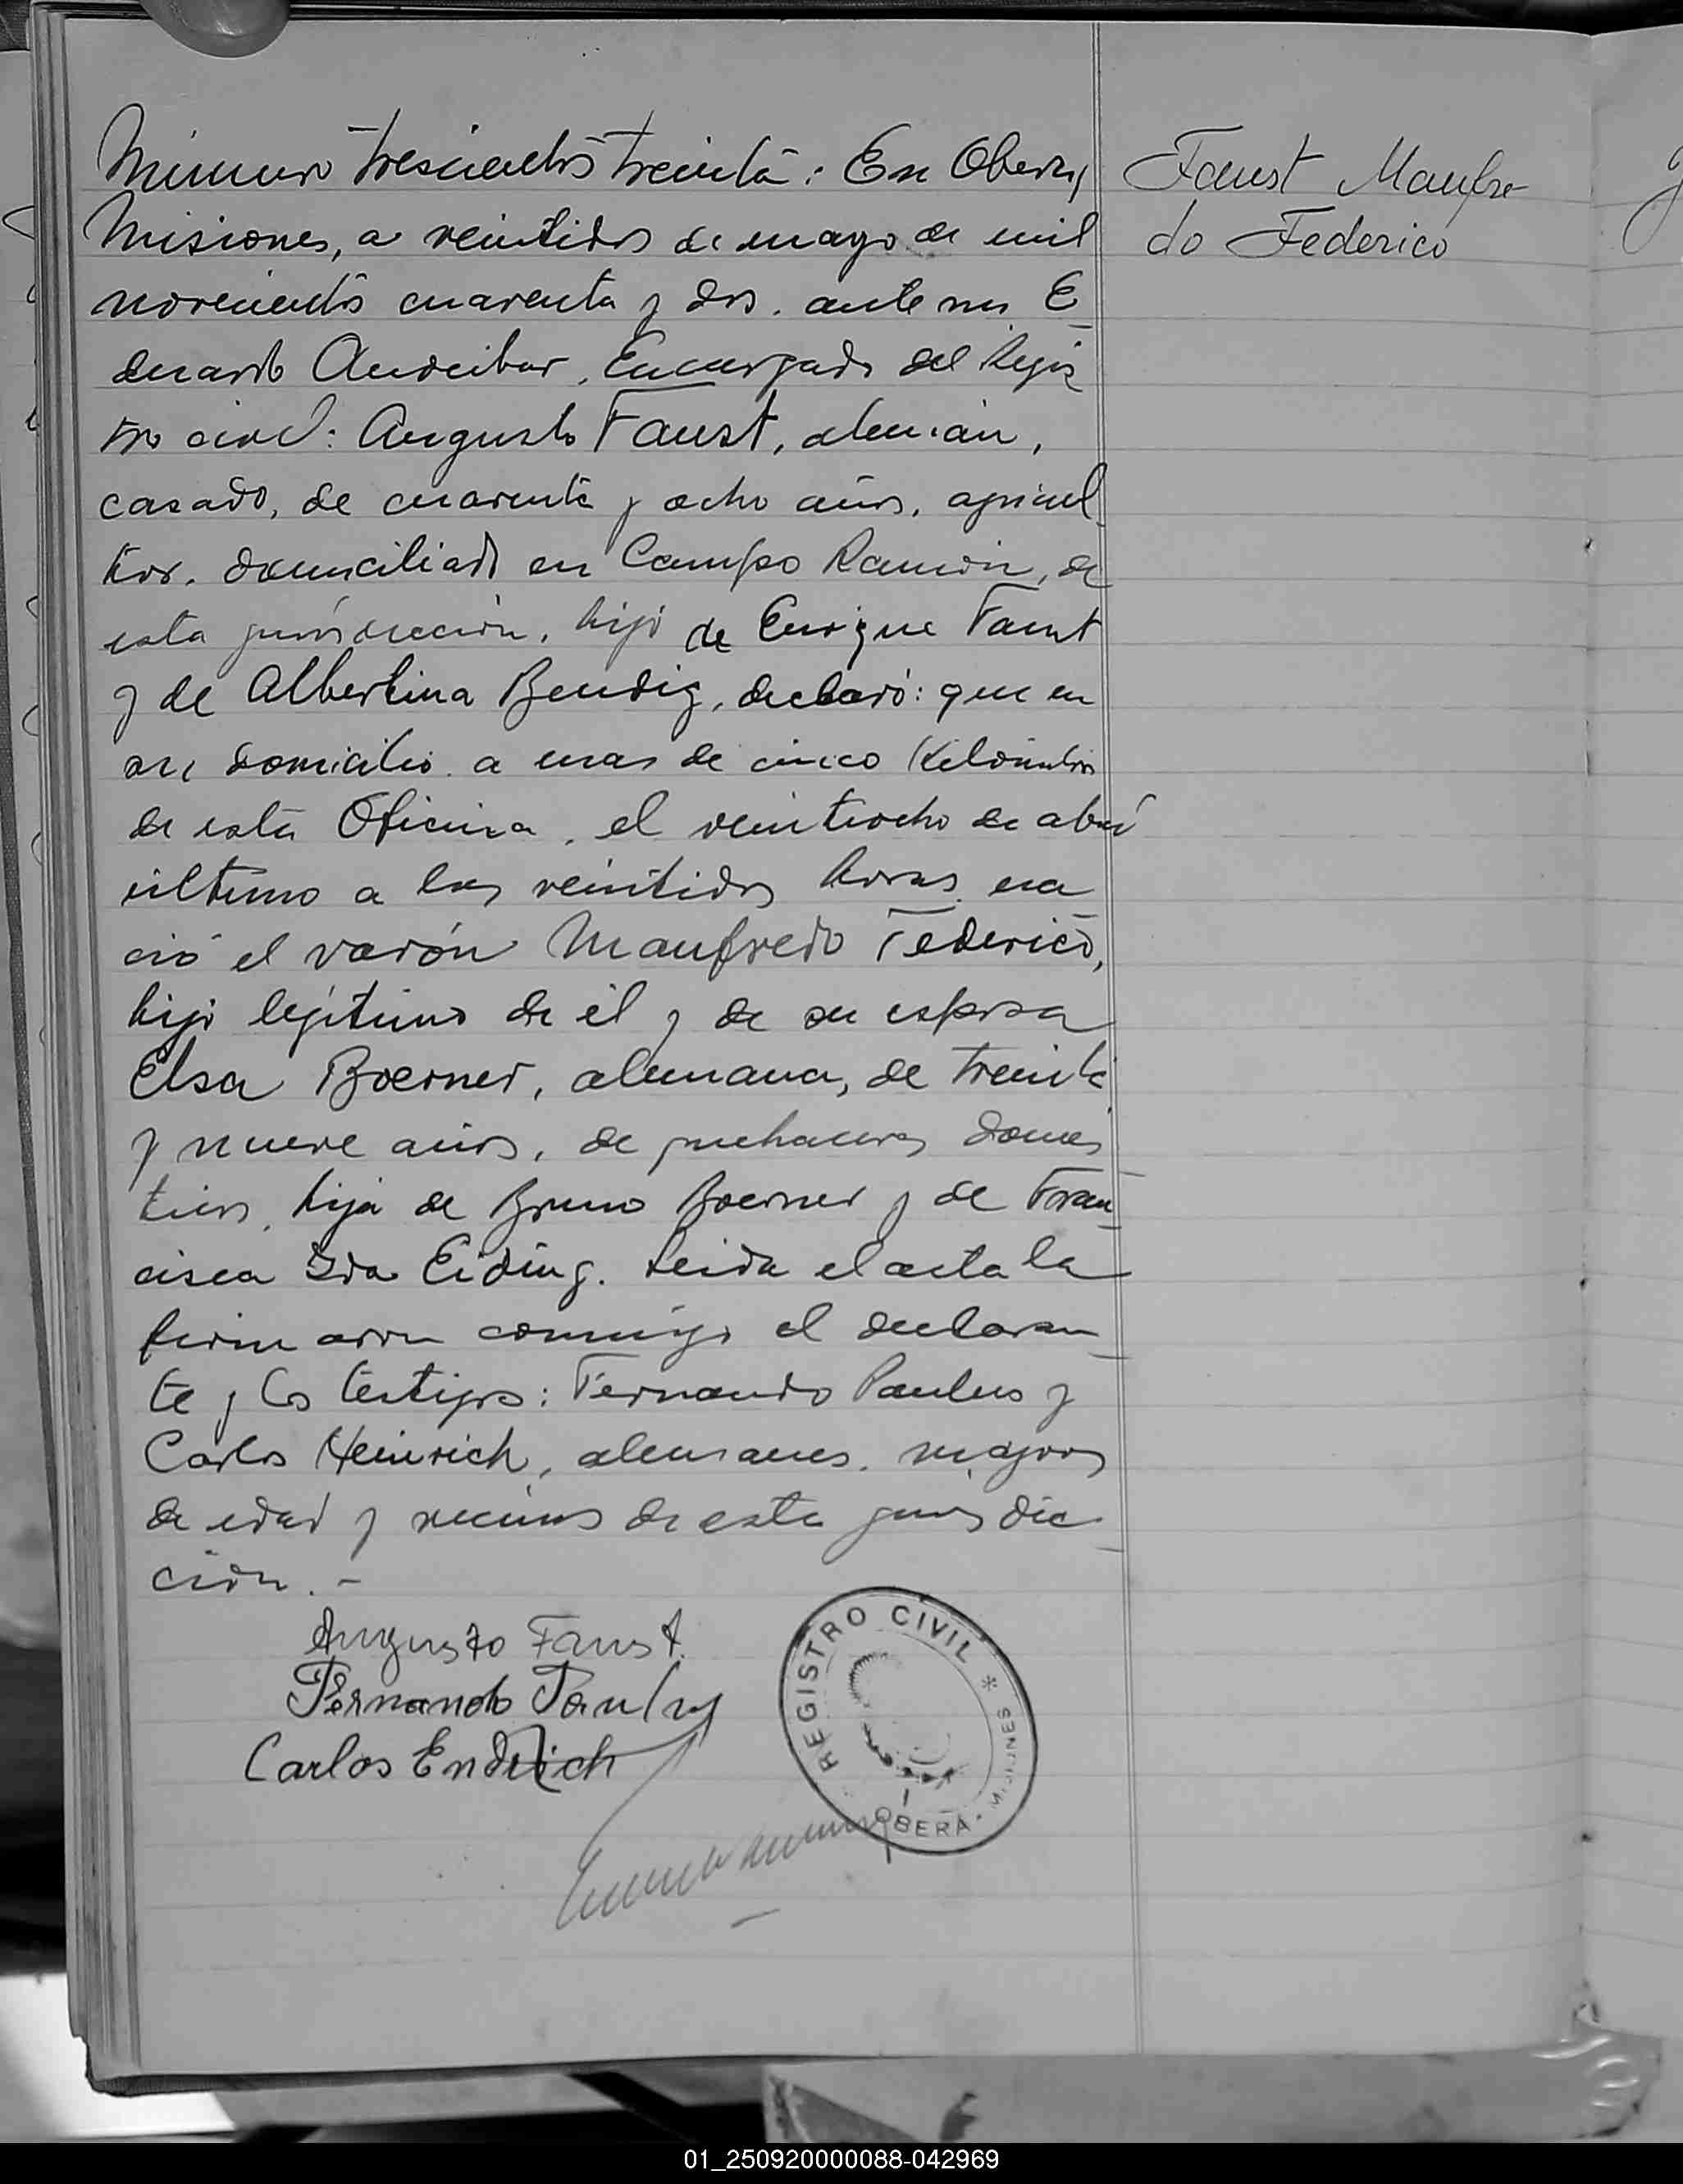 Número trescientos treinta: En Oberá,
Misiones, a veintidos de mayo de mil
novecientos cuarenta y dos, ante mi E
duardo Andueibar, Encargado del Regis
tro civil: Augusto Faust, alemán,
casado, de cuarenta y ocho años, agricul
tor, domiciliado en Campo Ramón, de
esta jurisdicción, hijo de Enrique Faust
y de Albertina Bendig, declaró: que en
su domicilio a mas de cinco Kilómetros
de esta Oficina, el veintiocho de abril
último a las veintidos horas na
ció el varón Manfredo Federico,
hijo legítimo de él y de su esposa
Elsa Boerner, alemana, de treinta
y nueve años, de quehaceres domes
ticos, hija de Bruno Boerner y de Fran
cisca Ida Eiding. Leida el acta la
firmaron conmigo el declaran
te y los testigos: Fernando Paulus y
Carlos Heinrich, alemanes, mayores
de edad y vecinos de esta jurisdic
ción.-
Augusto Faust.
Fernando Pauly
Carlos Endrich
REGISTRO CIVIL * OBERÁ - MISIONES
Faust Manfre-
do Federico
01_250920000088-042969